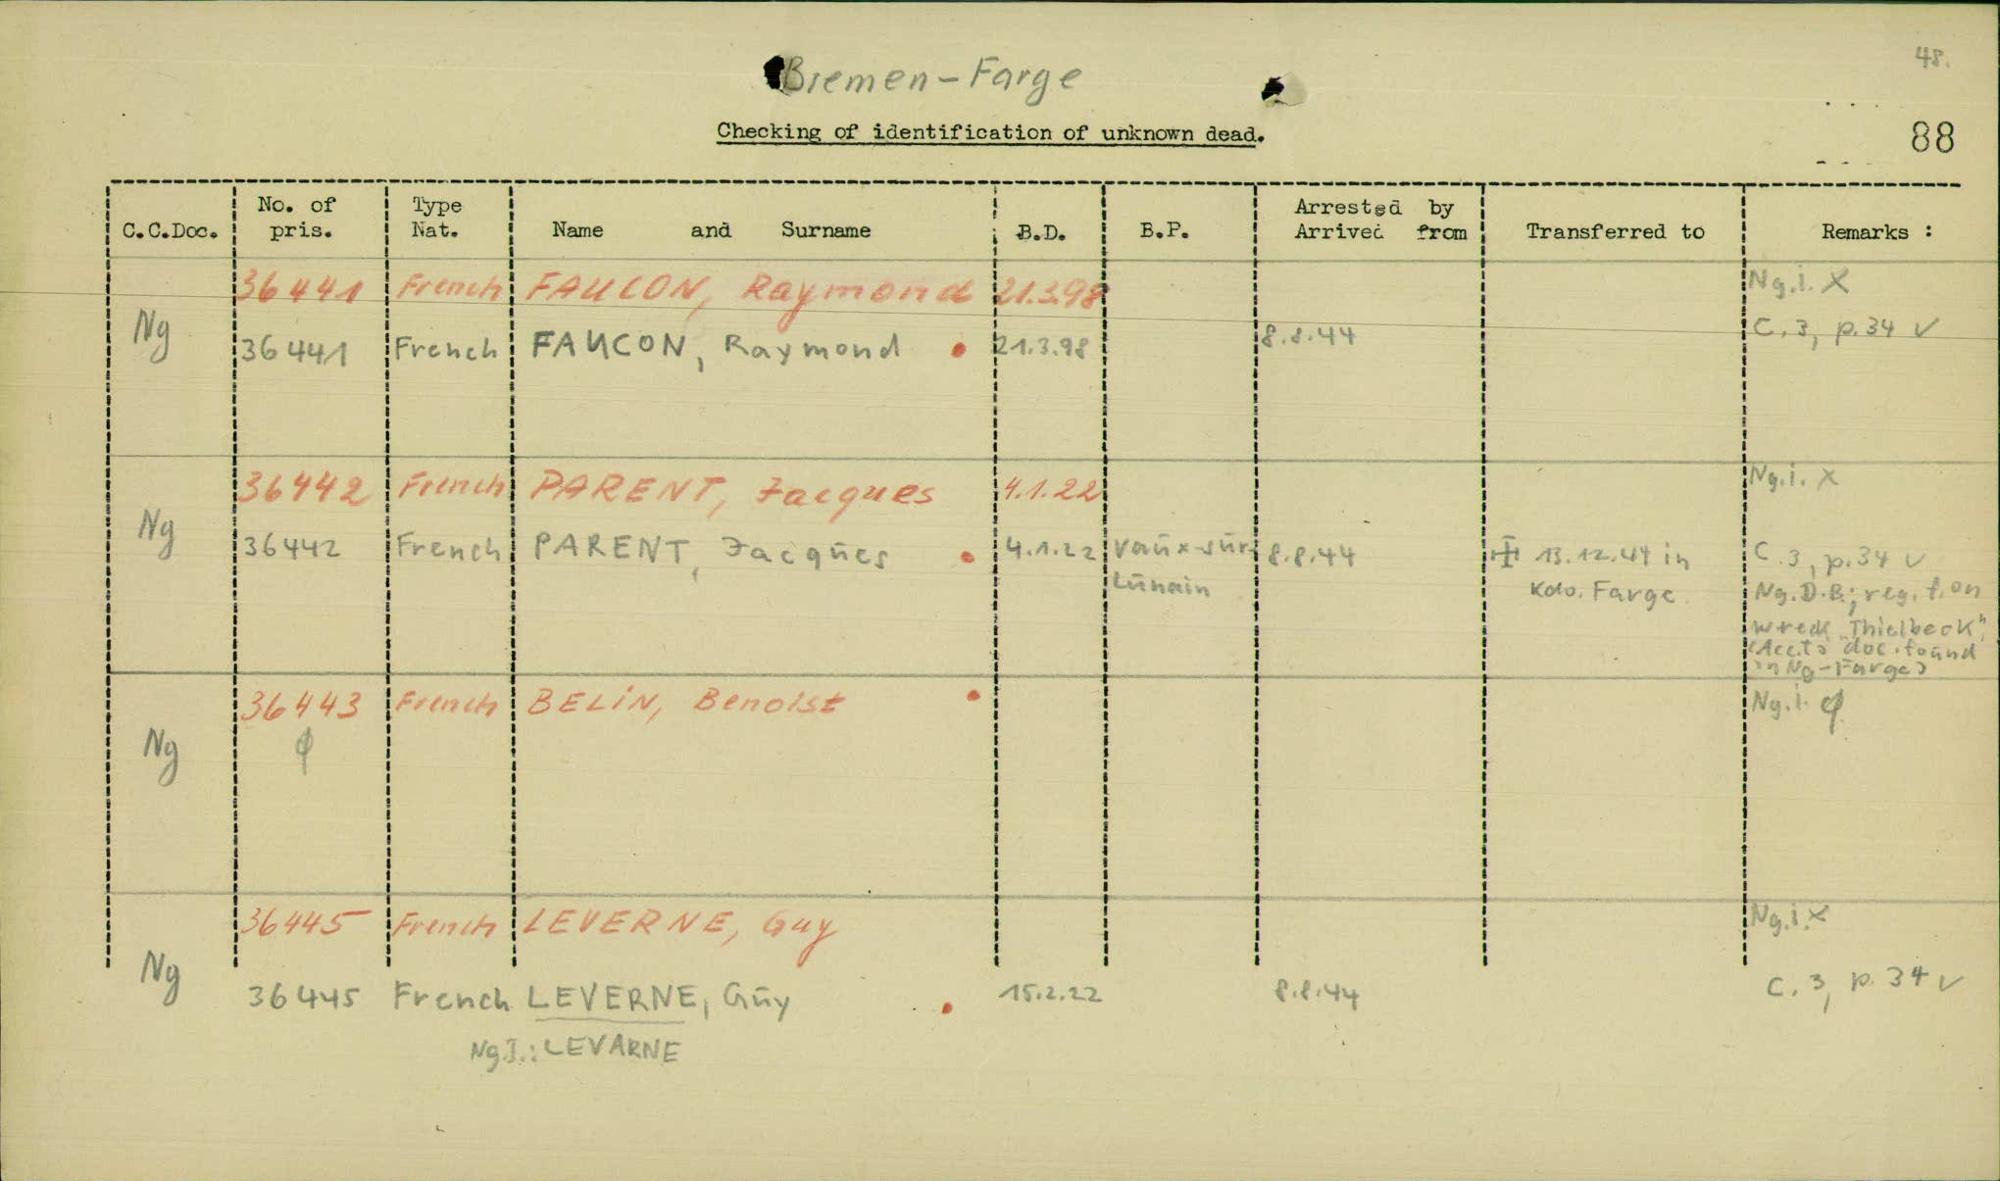 48.
Bremen-Farge
Checking of identification of unknown dead.
88
C.C.Doc. No. of pris. Type Nat. Name and Surname B.D. B.P. Arrested by Arrived from Transferred to Remarks :
36441 French FAUCON, Raymond 21.3.98 Ng.i. X
Ng 36441 French FAUCON, Raymond 21.3.98 8.8.44 C.3, p.34 v
36442 French PARENT, Jacques 4.1.22 Ng.i. X
Ng 36442 French PARENT, Jacques 4.1.22 Vaux-sur- 8.8.44 13.12.44 in C.3, p.34 v
Lunain Kdo. Farge Ng.D.B.; reg. f. on
wreck "Thielbeck"
(Acc.to doc. found
in Ng-Farge)
36443 French BELIN, Benoist Ng.i. φ
Ng φ
36445 French LEVERNE, Guy Ng.i. X
Ng 36445 French LEVERNE, Guy 15.2.22 8.8.44 C.3, p.34 v
Ng.I.: LEVARNE